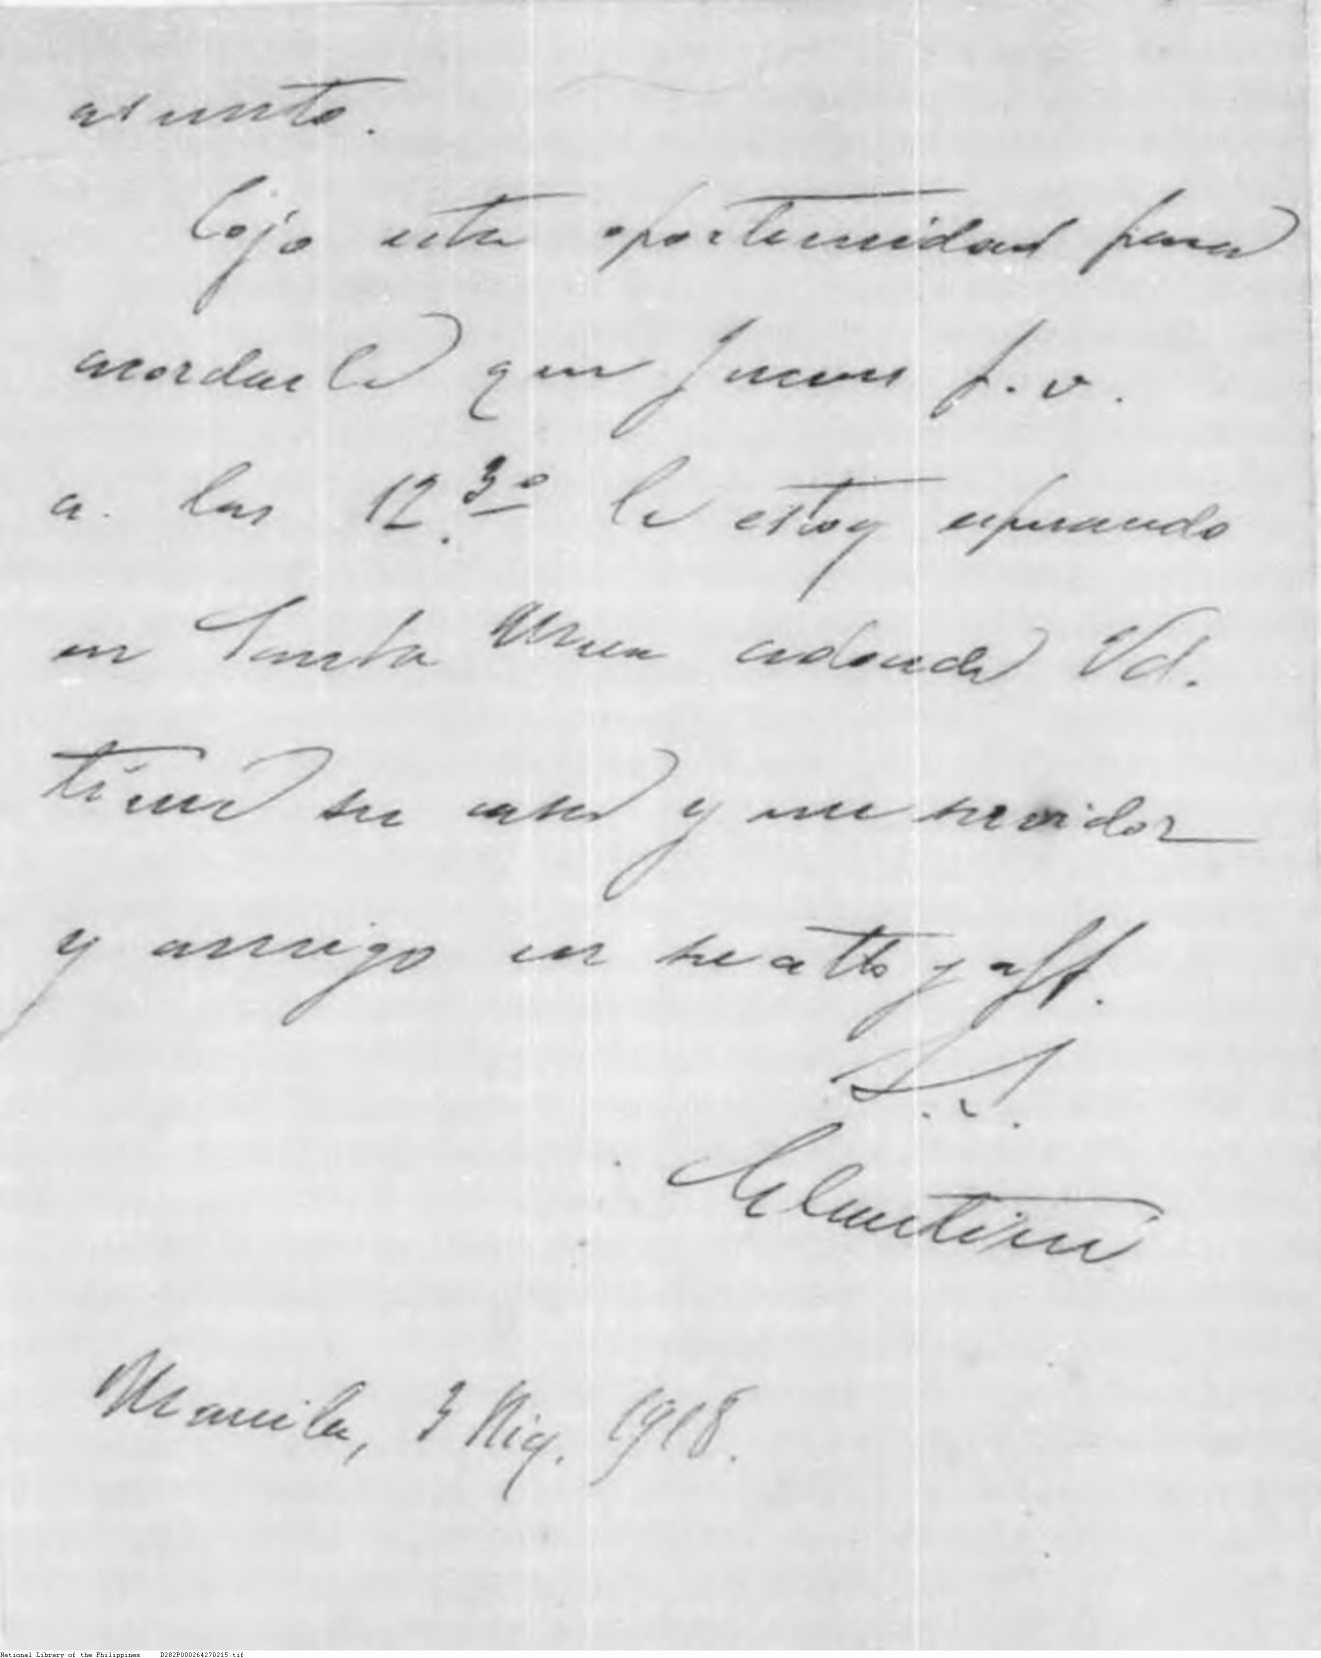 asunto.
Cojo esta oportunidad para
acordarle que jueves p. v.
a las 12.30 le estoy esperando
en Santa Mesa adonde Vd.
tiene su casa y un servidor
y amigo en su atto y aff.
S. S.
Manila, 3 1918.
National Library of the Philippines D282P000264270215.tif